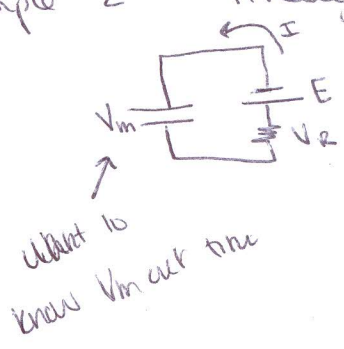 I
E
Vm
VR
Want to
know Vm over time